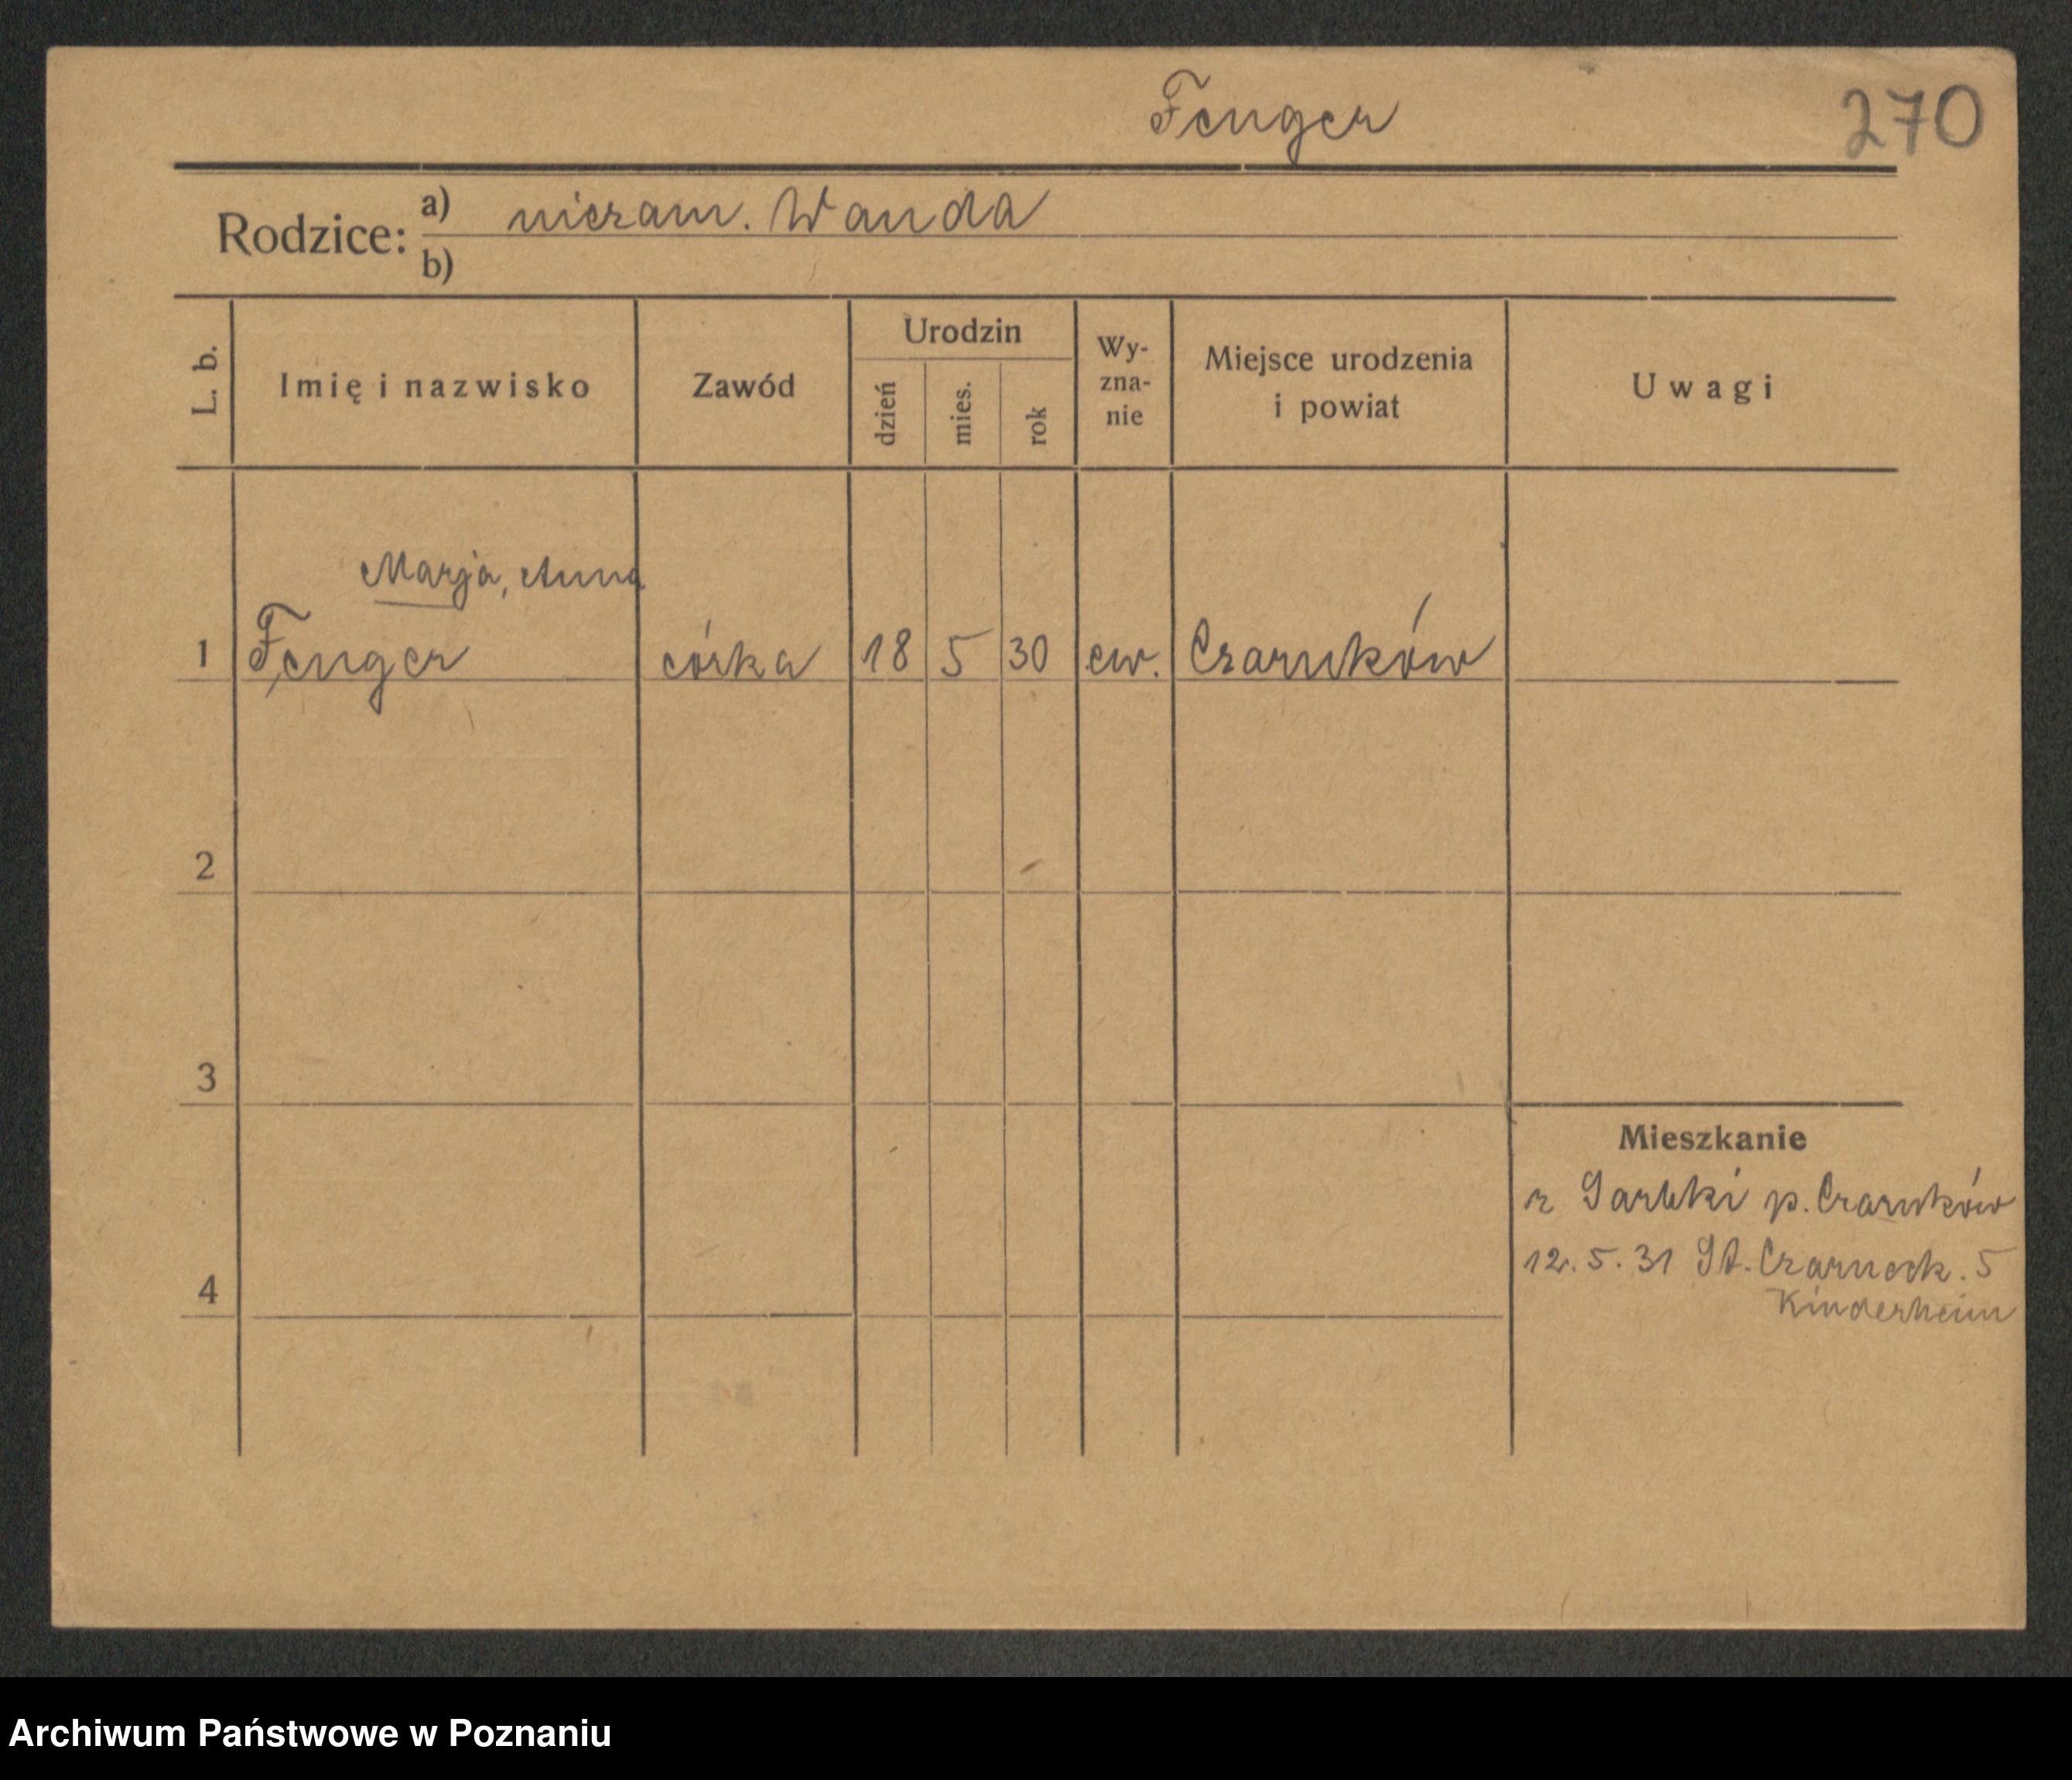 Fenger
270
Rodzice: a) niezam. Wanda
b)
L. b.
Imię i nazwisko
Zawód
Urodzin
dzień
mies.
rok
Wy-
zna-
nie
Miejsce urodzenia
i powiat
Uwagi
Marja, Anna
1 Fenger córka 18 5 30 ew. Czarnków
2
3
4
Mieszkanie
z Sarbki p. Czarnków
12. 5. 31 St. Czarneck. 5
Kinderheim
Archiwum Państwowe w Poznaniu